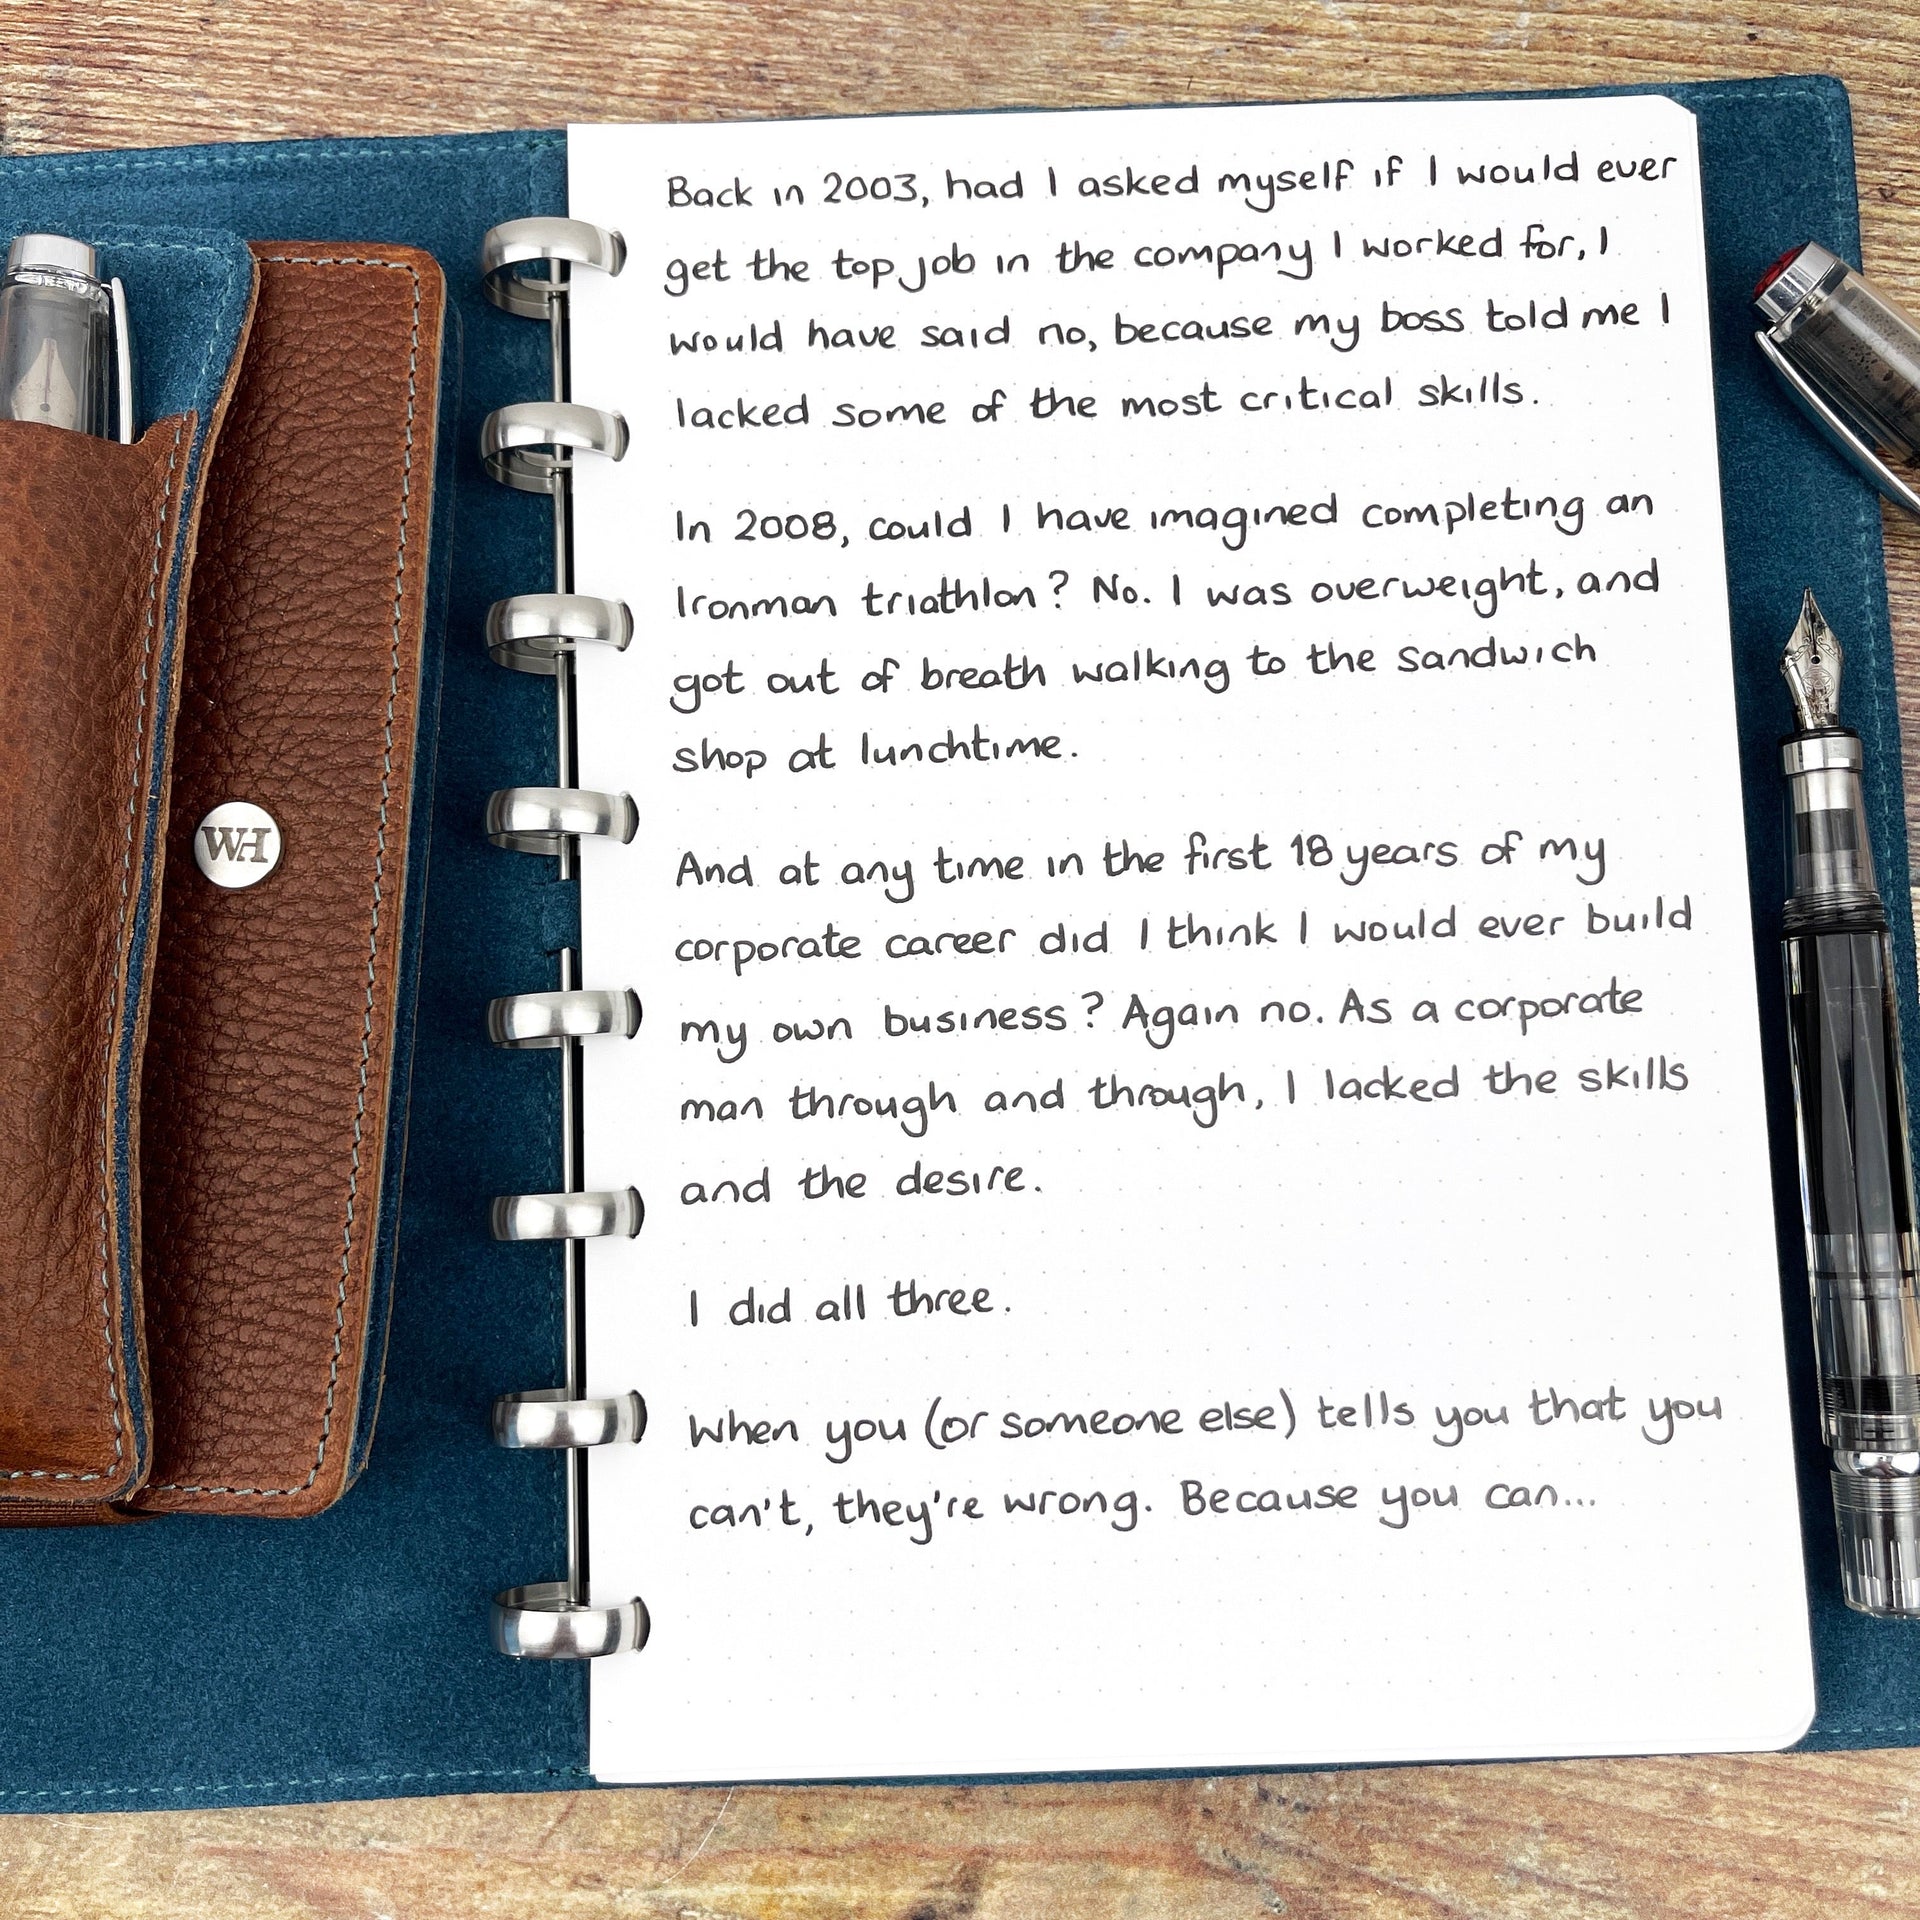 WH
Back in 2003, had I asked myself if I would ever
get the top job in the company I worked for, I
would have said no, because my boss told me I
lacked some of the most critical skills.
In 2008, could I have imagined completing an
Ironman triathlon? No. I was overweight, and
got out of breath walking to the sandwich
shop at lunchtime.
And at any time in the first 18 years of my
corporate career did I think I would ever build
my own business? Again no. As a corporate
man through and through, I lacked the skills
and the desire.
I did all three.
When you (or someone else) tells you that you
can't, they're wrong. Because you can...